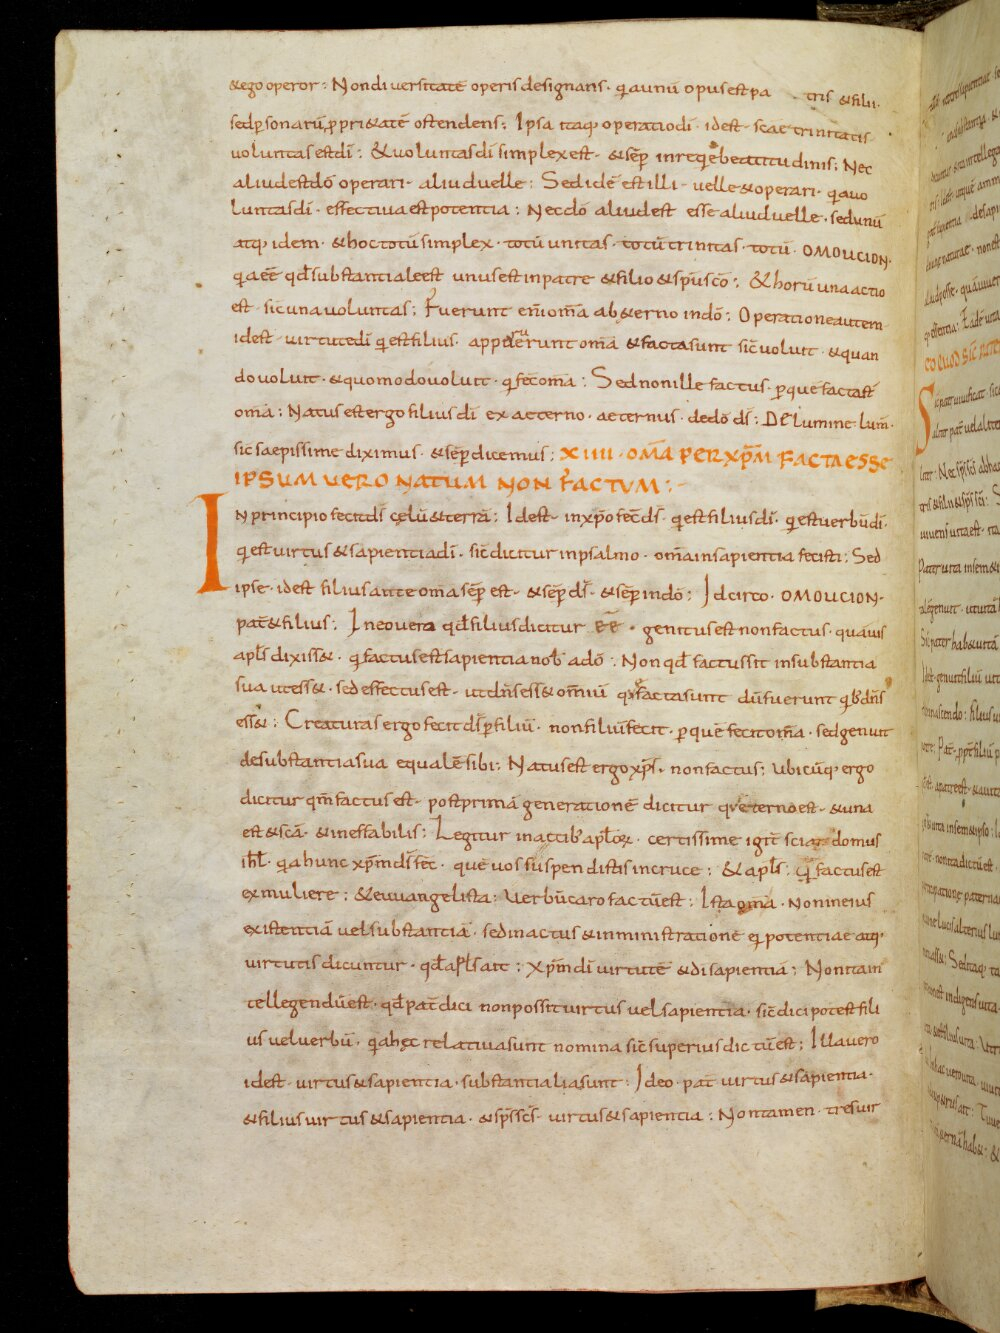 &ego operor : Non diuersitatē operis designans · q̄a unū opus est pa tris & filii ·
sed p̱sonarū p̱pri&atē ostendens ; Ipsa itaq; operatio dī · idest · scae trinitatis
uoluntas est dī ; & uoluntas dī simplex est · & sēp̱ in beatitudinis ; Nec
aliud est dō operari · aliud uelle ; Sed idē est illi · uelle & operari · q̄a uo
luntas dī · effectiua est potentia ; Nec dō aliud est esse aliud uelle · sed unū
atq; idem · & hoc totū simplex · totū unitas · totū trinitas · totū · OMOUCION ·
q̄a eē qđ substantiale est unus est in patre & filio & sp̄u scō ; & horū una actio
est · sic̄ una uoluntas ; Fuerunt enī om̄a ab &erno in dō ; Operatione autem
idest · uirtute dī q̄ est filius · apparuerunt om̄a & facta sunt sic̄ uoluit · & quan
do uoluit · & quomodo uoluit · q̄ fec̄ om̄a ; Sed non ille factus · p̱ que facta st̄
om̄a ; Natus est ergo filius dī ex aeterno · aeternus · de dō dś ; De lumine lum̄ ·
sic̄ saepissime diximus · & sēp̱ dicemus ; XIIII · OM̄A PER XP̄M FACTA ESSE
IPSUM UERO NATUM NON FACTUM ;
In principio fecit dś cęlū & terrā ; Idest · in xp̄o fec̄ dś · q̄ est filius dī · q̄ est uerbū dī ·
q̄ est uirtus & sapientia dī · sic̄ dicitur in psalmo · om̄a in sapientia fecisti ; Sed
ipse · idest filius ante om̄a sēp̱ est · & sēp̱ dś · & sēp̱ in dō ; Idcirco · OMOUCION ·
pat̄ & filius ; In eo uera qđ filius dicitur · genitus est non factus · quāuis
apl̄s dixiss& · q̄ factus est sapientia nob̄ a dō ; Non qđ factus sit in substantia
sua ut ess& · sed effectus est · ut dn̄s ess& omniū quę facta sunt dū fuerunt q̄b; dn̄s
ess& ; Creaturas ergo fecit dś p̱ filiū · non filiū fecit · p̱ quē fecit om̄a · sed genuit
de substantia sua equalē sibi ; Natus est ergo xp̄s · non factus ; Ubicūq; ergo
dicitur qm̄ factus est · post primā generationē dicitur quę eterno est · & una
est & scā · & ineffabilis ; Legitur in actib; apl̄oꝝ · certissime igit̄ sciat domus
ihl̄ · q̄a hunc xp̄m dś fec̄ · quē uos suspendistis in cruce ; & apl̄s ; q̄ factus est
ex muliere ; & euuangelista ; Uerbū caro factū est ; Ista om̄a · non in eius
existentiā uel substantiā · sed in actus & in ministrationē ei potentiae atq;
uirtutis dicuntur · qđ apl̄s ait ; Xp̄m dī uirtutē & dī sapientiā ; Non tam̄ in
tellegendū est · qđ pat̄ dici non possit uirtus uel sapientia · sic̄ dici potest fili
us uel uerbū · q̄a hęc relatiua sunt nomina sic̄ superius dictū est ; Illa uero
idest · uirtus & sapientia · substantialia sunt ; Ideo · pat̄ uirtus & sapientia ·
& filius uirtus & sapientia · & sp̄s sc̄s · uirtus & sapientia ; Non tamen · tres uir